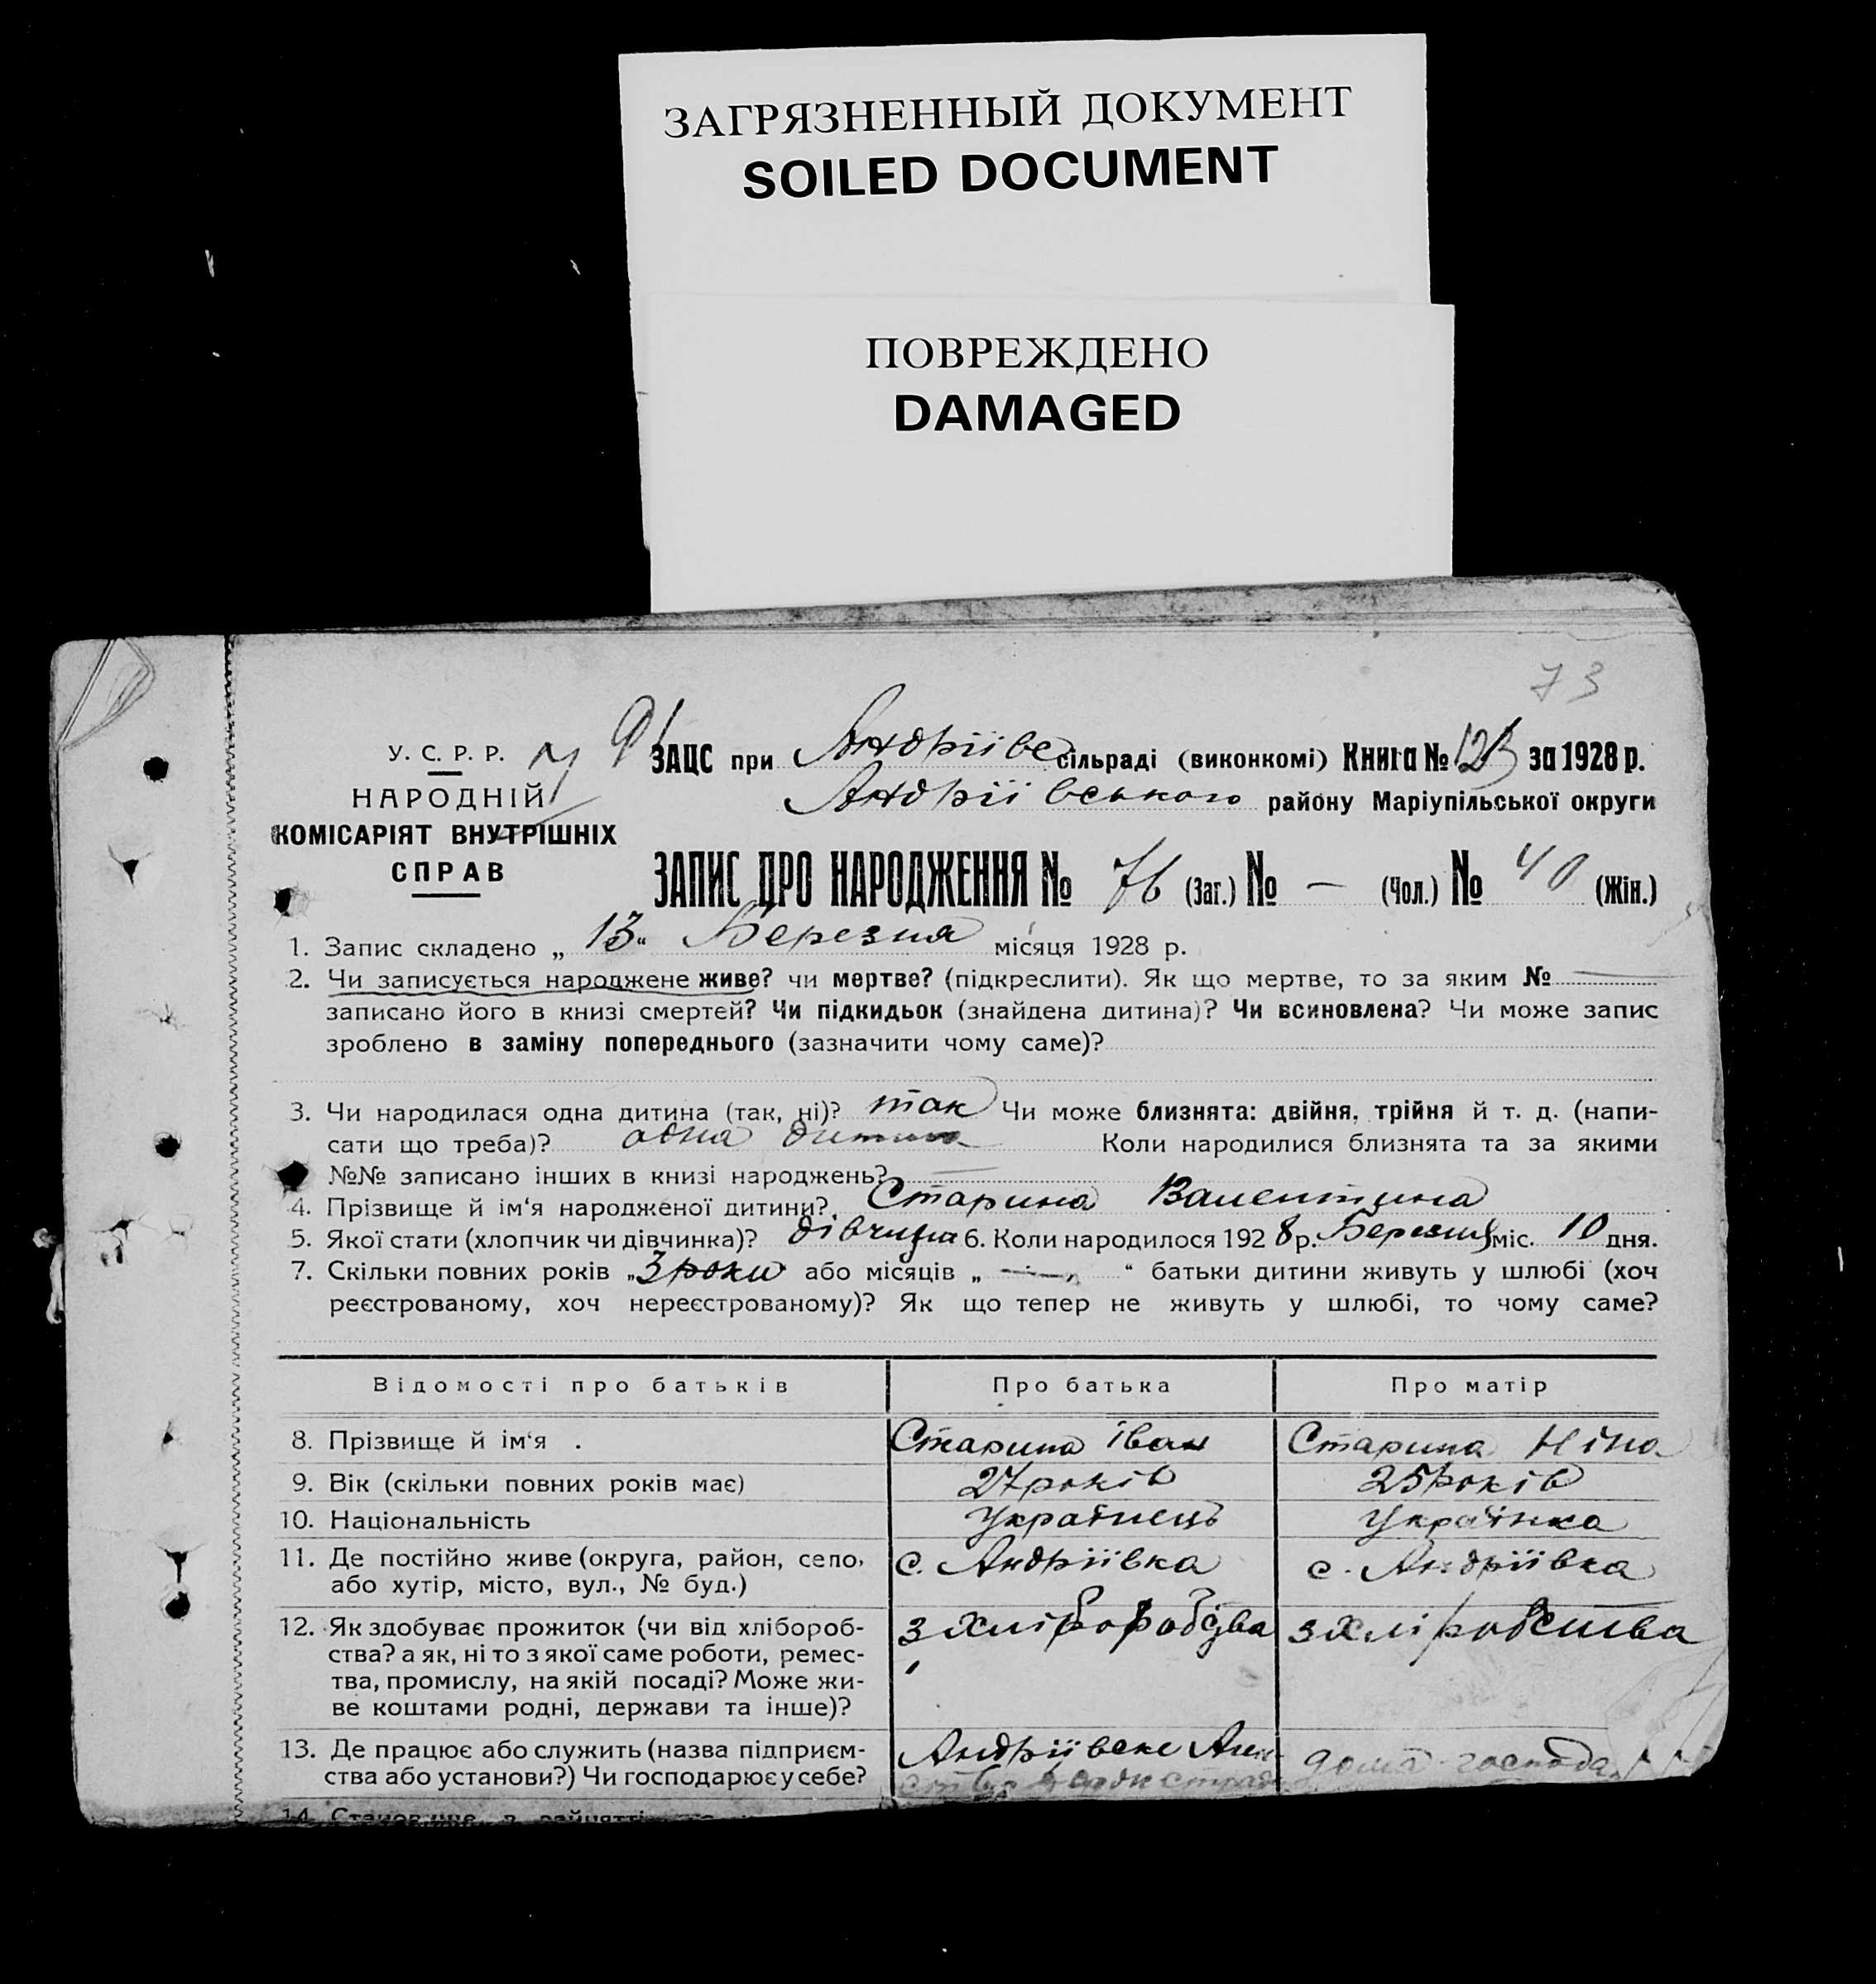 ЗАГРЯЗНЕННЫЙ ДОКУМЕНТ
SOILED DOCUMENT
ПОВРЕЖДЕНО
DAMAGED
73
У. С. Р. Р.
НАРОДНІЙ
КОМІСАРІЯТ ВНУТРІШНІХ
СПРАВ
ЗАЦС при Андріївс сільраді (виконкомі) Книга № за 1928 р.
Андріївського району Маріупільської округи
ЗАПИС ПРО НАРОДЖЕННЯ № 76 (Заг.) № — (Чол.) № 40 (Жін.)
1. Запис складено „ 13 “ Березня місяця 1928 р.
2. Чи записується народжене живе? чи мертве? (підкреслити). Як що мертве, то за яким № —
записано його в книзі смертей? Чи підкидьок (знайдена дитина)? Чи всиновлена? Чи може запис
зроблено в заміну попереднього (зазначити чому саме)?
3. Чи народилася одна дитина (так, ні)? так Чи може близнята: двійня, трійня й т. д. (напи-
сати що треба)? одна дитина Коли народилися близнята та за якими
№№ записано інших в книзі народжень? —
4. Прізвище й ім‘я народженої дитини? Старина Валентина
5. Якої стати (хлопчик чи дівчинка)? дівчина 6. Коли народилося 1928 р. Березня міс. 10 дня.
7. Скільки повних років „ 3 роки або місяців „ — “ батьки дитини живуть у шлюбі (хоч
реєстрованому, хоч нереєстрованому)? Як що тепер не живуть у шлюбі, то чому саме?
Відомості про батьків Про батька Про матір
8. Прізвище й ім‘я . Старина Іван Старина Ніна
9. Вік (скільки повних років має) 27 років 25 років
10. Національність Українець Українка
11. Де постійно живе (округа, район, село, с. Андріївка с. Андріївка
або хутір, місто, вул., № буд.)
12. Як здобуває прожиток (чи від хлібороб- з
ства? а як, ні то з якої саме роботи, ремес-
тва, промислу, на якій посаді? Може жи-
ве коштами родні, держави та інше)?
13. Де працює або служить (назва підприєм- Андріївське дома
ства або установи?) Чи господарює у себе?
14. Становище в зайнятті